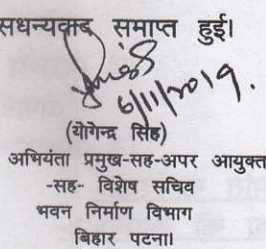 सधन्यवाद समाप्त हुई।
6/11/2019.
(योगेन्द्र सिंह)
अभियंता प्रमुख-सह-अपर आयुक्त
-सह- विशेष सचिव
भवन निर्माण विभाग
बिहार पटना।